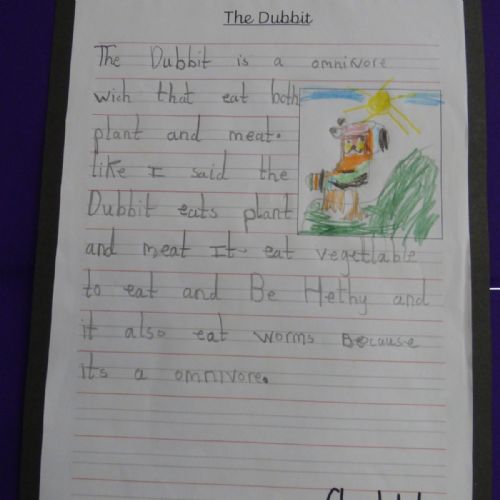 The Dubbit
The Dubbit is a omnivore
wich that eat both
plant and meat.
like I said the
Dubbit eats plant
and meat It eat vegettable
to eat and Be Hethy and
it also eat worms Because
its a omnivore.